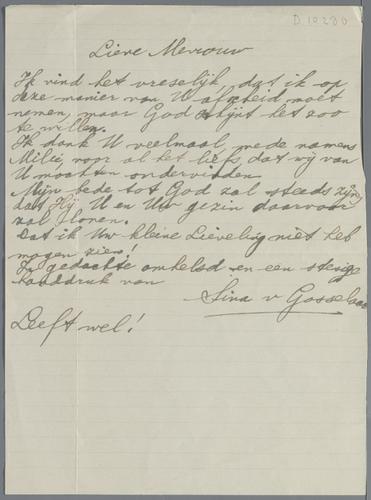 D.10280
Lieve Mevrouw
Ik vind het vreselijk, dat ik op
deze manier van U afscheid moet
nemen, maar God schijnt het zoo
te willen.
Ik dank U veelmaal, mede namens
Milie, voor al het liefs, dat wij van
U mochten ondervinden.
Mijn bede tot God zal steeds zijn,
dat Hij U en Uw gezin daarvoor
zal lonen.
Dat ik Uw kleine Lieveling niet heb
mogen zien!
In gedachte omhelsd en een stevige
handdruk van
Sina v Gosselaar
Leeft wel!